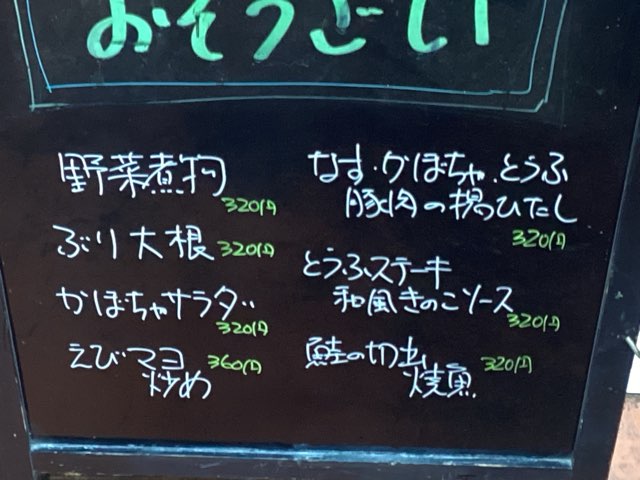 おそうざい
野菜煮物
320円
ぶり大根 320円
かぼちゃサラダ
320円
えびマヨ 360円
炒め
なす・かぼちゃ・とうふ
豚肉の揚げひたし
320円
とうふステーキ
和風きのこソース
320円
鮭の切り身 320円
焼魚